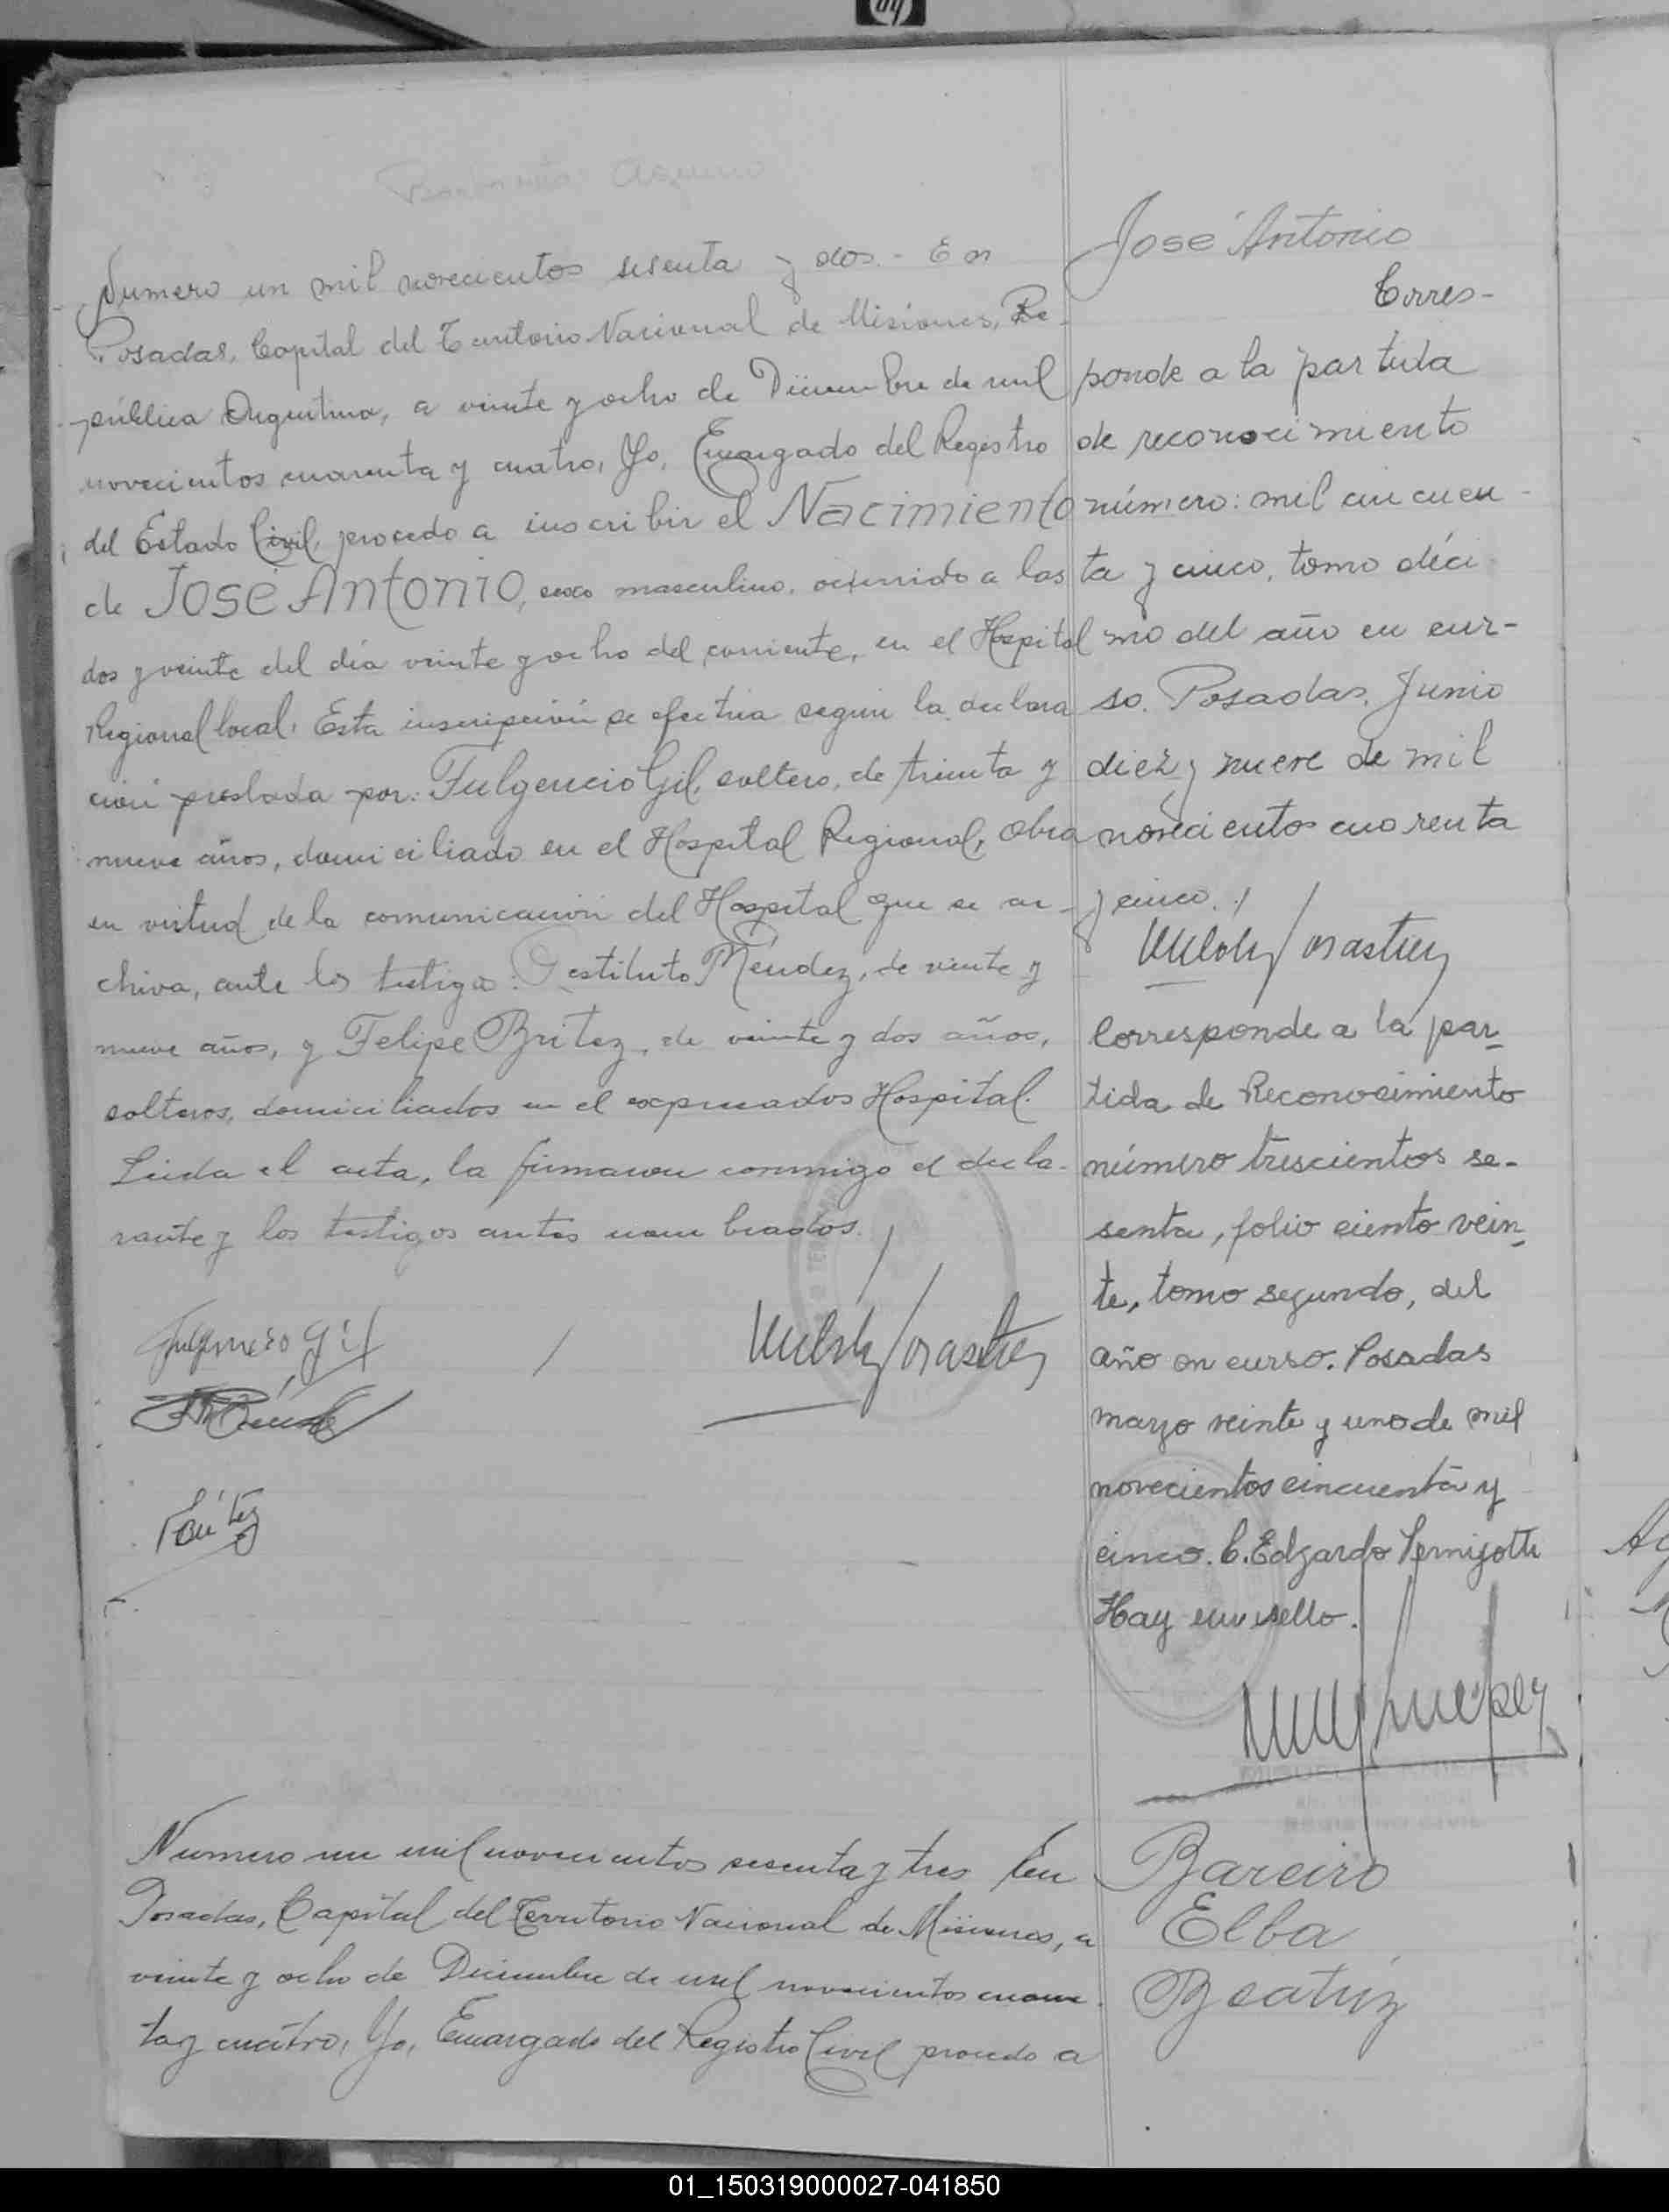 hp
Numero un mil novecientos sesenta y dos.- En
Posadas, Capital del Territorio Nacional de Misiones, Re-
pública Argentina, a veinte y ocho de Diciembre de mil
novecientos cuarenta y cuatro, Yo, Encargado del Registro
del Estado Civil, procedo a inscribir el Nacimiento
de José Antonio, sexo masculino, ocurrido a las
dos y veinte del día veinte y ocho del corriente, en el Hospital
Regional local. Esta inscripción se efectúa según la declara
ción prestada por: Fulgencio Gil, soltero, de treinta y
nueve años, domiciliado en el Hospital Regional, obra
en virtud de la comunicación del Hospital que se ar-
chiva, ante los testigos: Restituto Méndez, de veinte y
nueve años, y Felipe Britez, de veinte y dos años,
solteros, domiciliados en el expresados Hospital.
Leida el acta, la firmaron conmigo el decla-
rante y los testigos antes nombrados.
Fulgencio Gil
José Antonio
Corres-
ponde a la partida
de reconocimiento
número: mil cincuen-
ta y cinco, tomo déci
mo del año en cur-
so. Posadas, Junio
diez y nueve de mil
novecientos cuarenta
y cinco.
Corresponde a la par-
tida de Reconocimiento
número trescientos se-
senta, folio ciento vein-
te, tomo segundo, del
año en curso. Posadas
mayo veinte y uno de mil
novecientos cincuenta y
cinco. C. Edgardo Pernigotti
Hay un sello.
Numero un mil novecientos sesenta y tres En
Posadas, Capital del Territorio Nacional de Misiones, a
veinte y ocho de Diciembre de mil novecientos cuaren
ta y cuatro, Yo, Encargado del Registro Civil procedo a
Bareiro
Elba
Beatriz
01_150319000027-041850